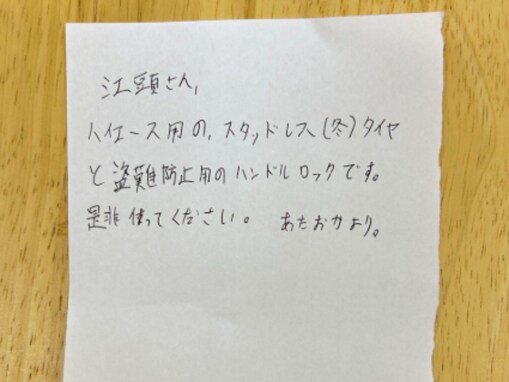 江頭さん,
ハイエース用の,スタッドレス(冬)タイヤ
と盗難防止用のハンドルロックです。
是非使ってください。 あたおかより。